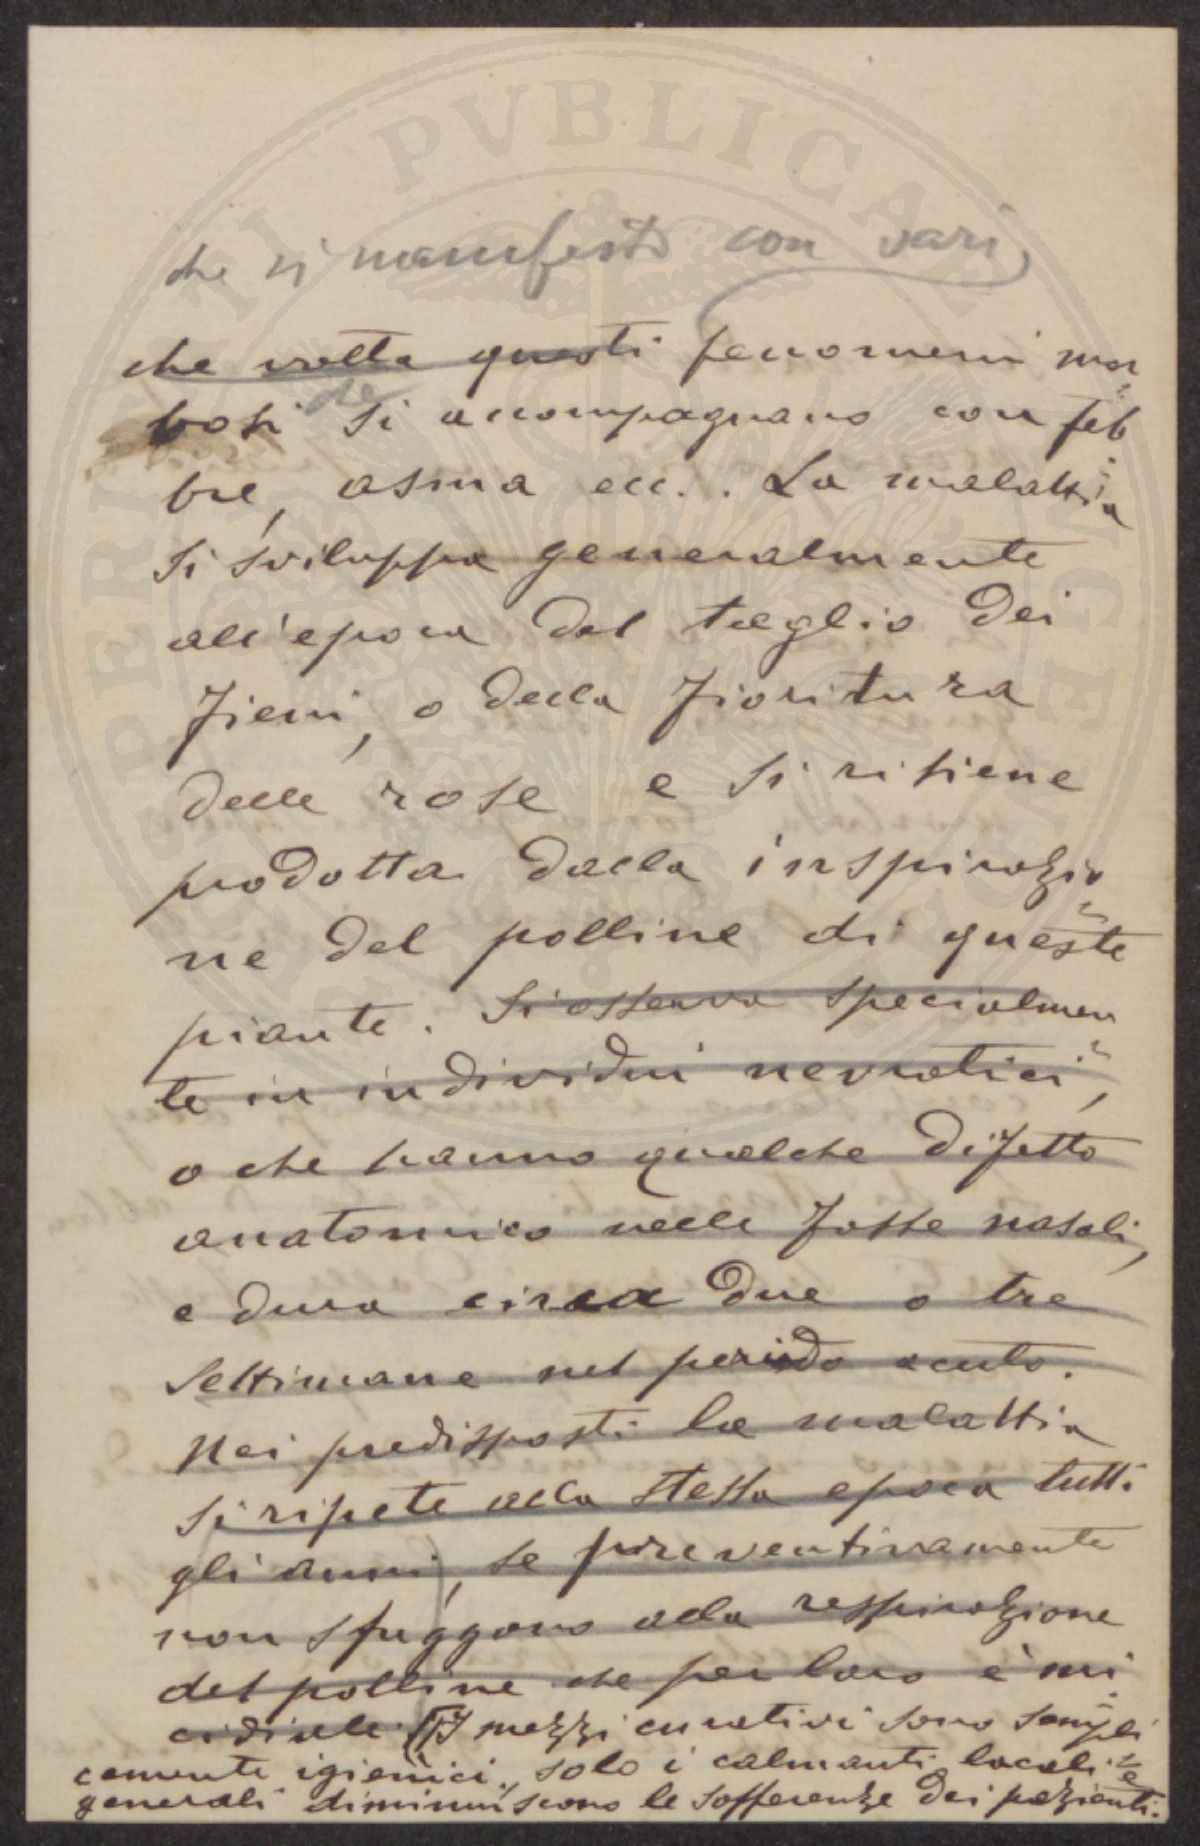 che si manifesta con vari
che volta questi fenomeni mor
bosi che si accompagnano con feb
bre, asma ecc.. La malattia
si sviluppa generalmente
all'epoca del taglio dei
fieni, o della fioritura
delle rose e si ritiene
prodotta dalla inspirazio
ne del polline di queste
piante. Si osserva specialmen
te in individui nevrotici,
o che hanno qualche difetto
anatomico nelle fosse nasali,
e dura circa due o tre
settimane nel periodo acuto.
Nei predisposti la malattia
si ripete alla stessa epoca tutti
gli anni, se preventivamente
non sfuggono alla respirazione
del polline che per loro è mi
cidiale. (I mezzi curativi sono sempli
cemente igienici, solo i calmanti locali e
generali diminuiscono le sofferenze dei pazienti.